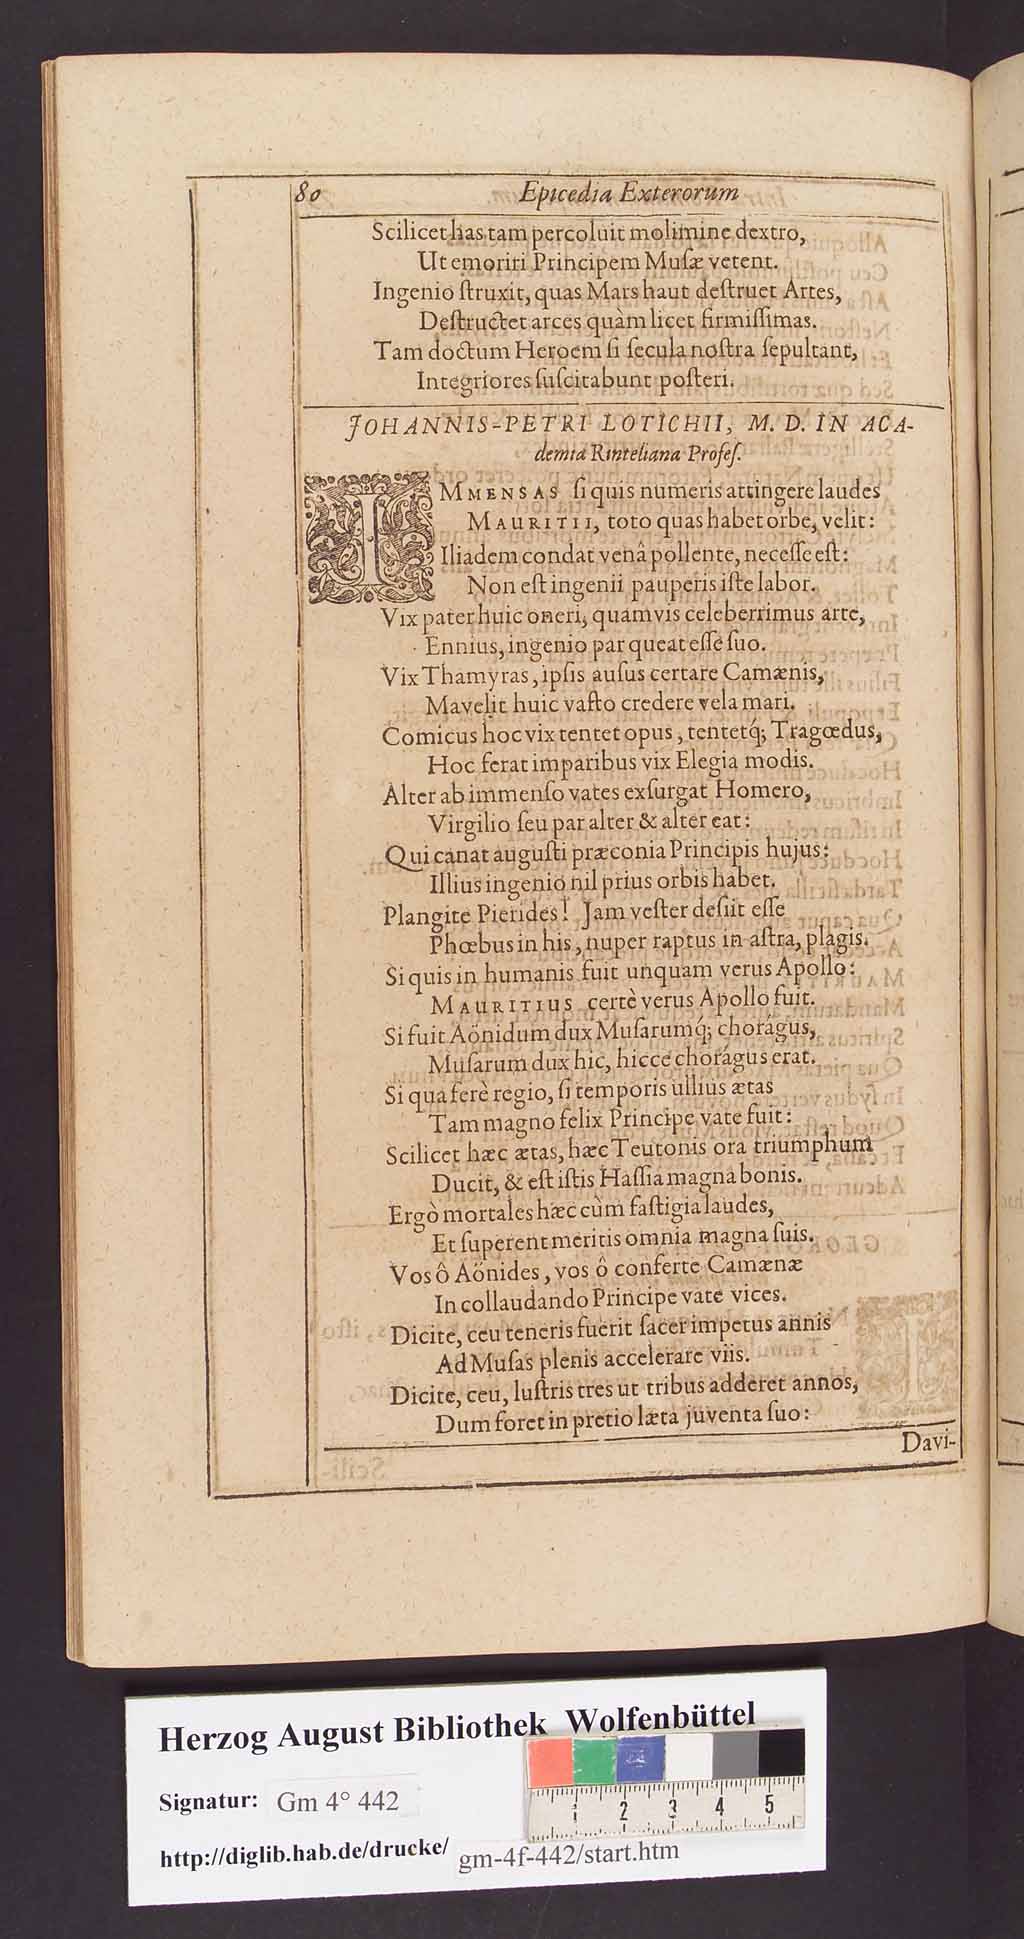 80 Epicedia Exterorum
Scilicet has tam percoluit molimine dextro,
Ut emoriri Principem Muſæ vetent.
Ingenio ſtruxit, quas Mars haut deſtruet Artes,
Deſtructet arces quàm licet firmiſſimas.
Tam doctum Heroem ſi ſecula noſtra ſepultant,
Integriores ſuſcitabunt poſteri.
JOHANNIS-PETRI LOTICHII, M. D. IN ACA-
demia Rinteliana Profeſ.
IMMENSAS ſi quis numeris attingere laudes
MAURITII, toto quas habet orbe, velit:
Iliadem condat venâ pollente, neceſſe eſt:
Non eſt ingenii pauperis iſte labor.
Vix pater huic oneri, quamvis celeberrimus arte,
Ennius, ingenio par queat eſſe ſuo.
Vix Thamyras, ipſis auſus certare Camænis,
Mavelit huic vaſto credere vela mari.
Comicus hoc vix tentet opus, tentetq́; Tragœdus,
Hoc ferat imparibus vix Elegia modis.
Alter ab immenſo vates exſurgat Homero,
Virgilio ſeu par alter & alter eat:
Qui canat auguſti præconia Principis hujus:
Illius ingenio nil prius orbis habet.
Plangite Pierides! Jam veſter deſiit eſſe
Phœbus in his, nuper raptus in aſtra, plagis.
Si quis in humanis fuit unquam verus Apollo:
MAURITIUS certè verus Apollo fuit.
Si fuit Aönidum dux Muſarumq́; chorágus,
Muſarum dux hic, hicce chorágus erat.
Si qua ferè regio, ſi temporis ullius ætas
Tam magno felix Principe vate fuit:
Scilicet hæc ætas, hæc Teutonis ora triumphum
Ducit, & eſt iſtis Haſſia magna bonis.
Ergò mortales hæc cùm faſtigia laudes,
Et ſuperent meritis omnia magna ſuis.
Vos ô Aönides, vos ô conferte Camænæ
In collaudando Principe vate vices.
Dicite, ceu teneris fuerit ſacer impetus annis
Ad Muſas plenis accelerare viis.
Dicite, ceu, luſtris tres ut tribus adderet annos,
Dum foret in pretio læta juventa ſuo:
Davi-
Herzog August Bibliothek Wolfenbüttel
Signatur: Gm 4° 442
http://diglib.hab.de/drucke/ gm-4f-442/start.htm
1 2 3 4 5